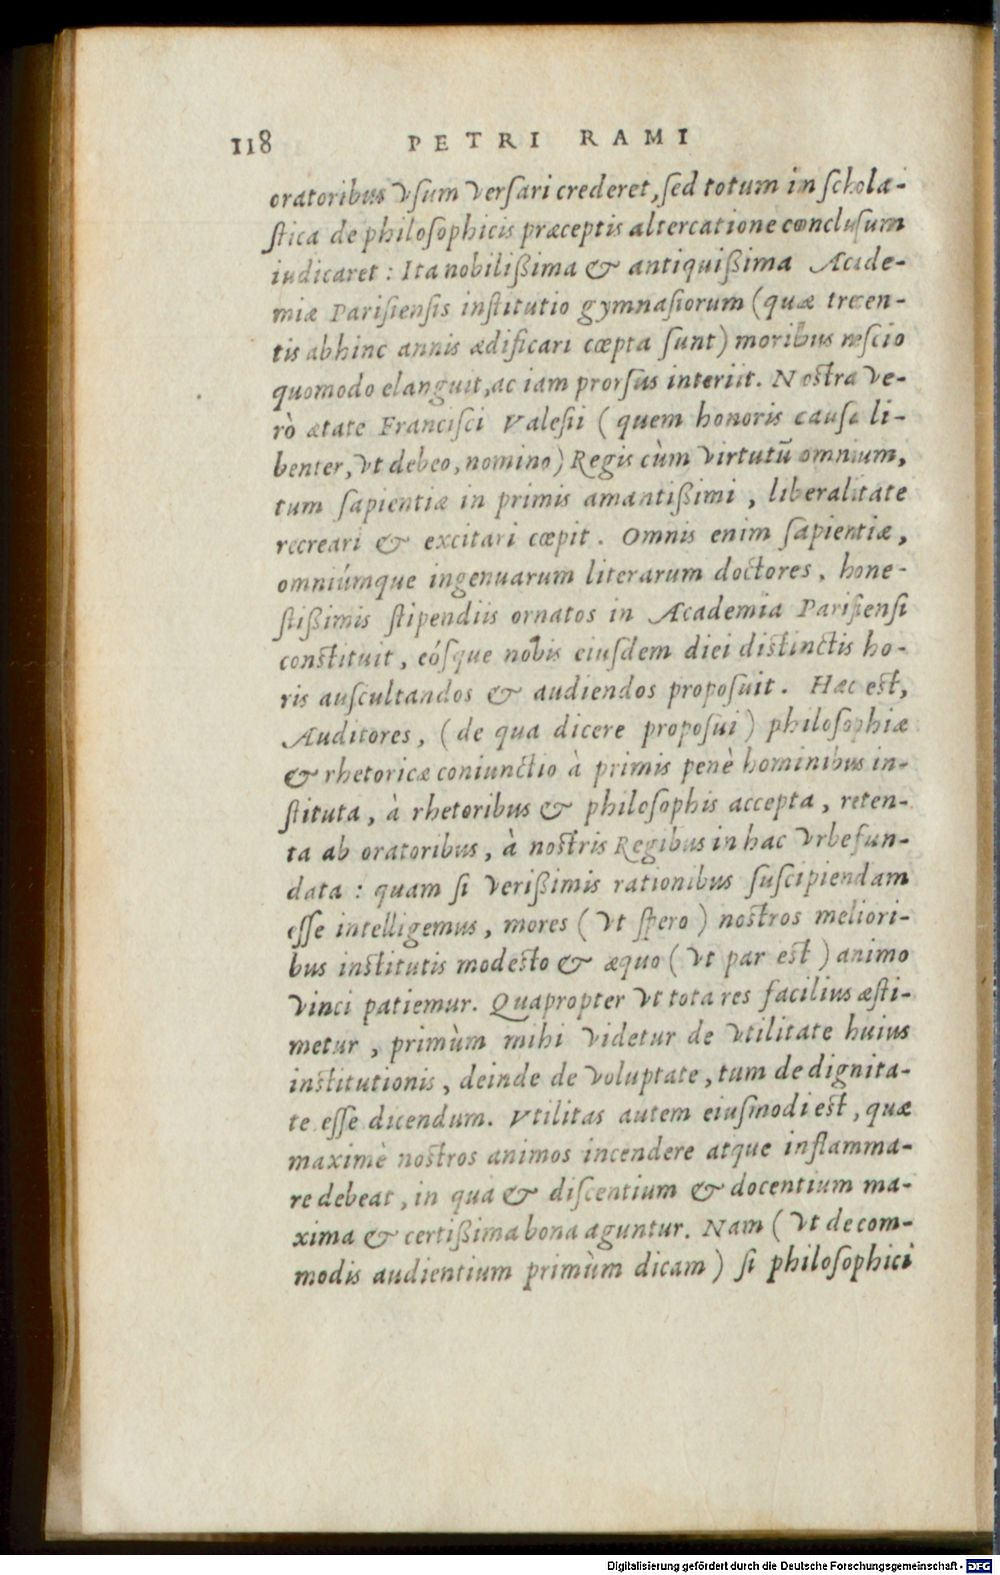 118 PETRI RAMI
oratoribus vsum versari crederet, sed totum in schola-
stica de philosophicis præceptis altercatione conclusum
iudicaret : Ita nobilißima & antiquißima Acade-
miæ Parisiensis institutio gymnasiorum (quæ trecen-
tis abhinc annis ædificari cœpta sunt) moribus nescio
quomodo elanguit, ac iam prorsus interiit. Nostra ve-
rò ætate Francisci Valesii ( quem honoris causa li-
benter, vt debeo, nomino) Regis cùm virtutũ omnium,
tum sapientiæ in primis amantißimi , liberalitate
recreari & excitari cœpit . Omnis enim sapientiæ,
omniúmque ingenuarum literarum doctores , hone-
stißimis stipendiis ornatos in Academia Parisiensi
constituit , eósque nobis eiusdem diei distinctis ho-
ris auscultandos & audiendos proposuit . Hæc est,
Auditores, (de qua dicere proposui) philosophiæ
& rhetoricæ coniunctio à primis penè hominibus in-
stituta , à rhetoribus & philosophis accepta , reten-
ta ab oratoribus, à nostris Regibus in hac vrbe fun-
data : quam si verißimis rationibus suscipiendam
esse intelligemus, mores ( vt spero ) nostros meliori-
bus institutis modesto & æquo ( vt par est ) animo
vinci patiemur. Quapropter vt tota res facilius æsti-
metur , primùm mihi videtur de vtilitate huius
institutionis , deinde de voluptate, tum de dignita-
te esse dicendum. Vtilitas autem eiusmodi est , quæ
maximè nostros animos incendere atque inflamma-
re debeat, in qua & discentium & docentium ma-
xima & certißima bona aguntur. Nam ( vt de com-
modis audientium primùm dicam ) si philosophici
Digitalisierung gefördert durch die Deutsche Forschungsgemeinschaft - DFG